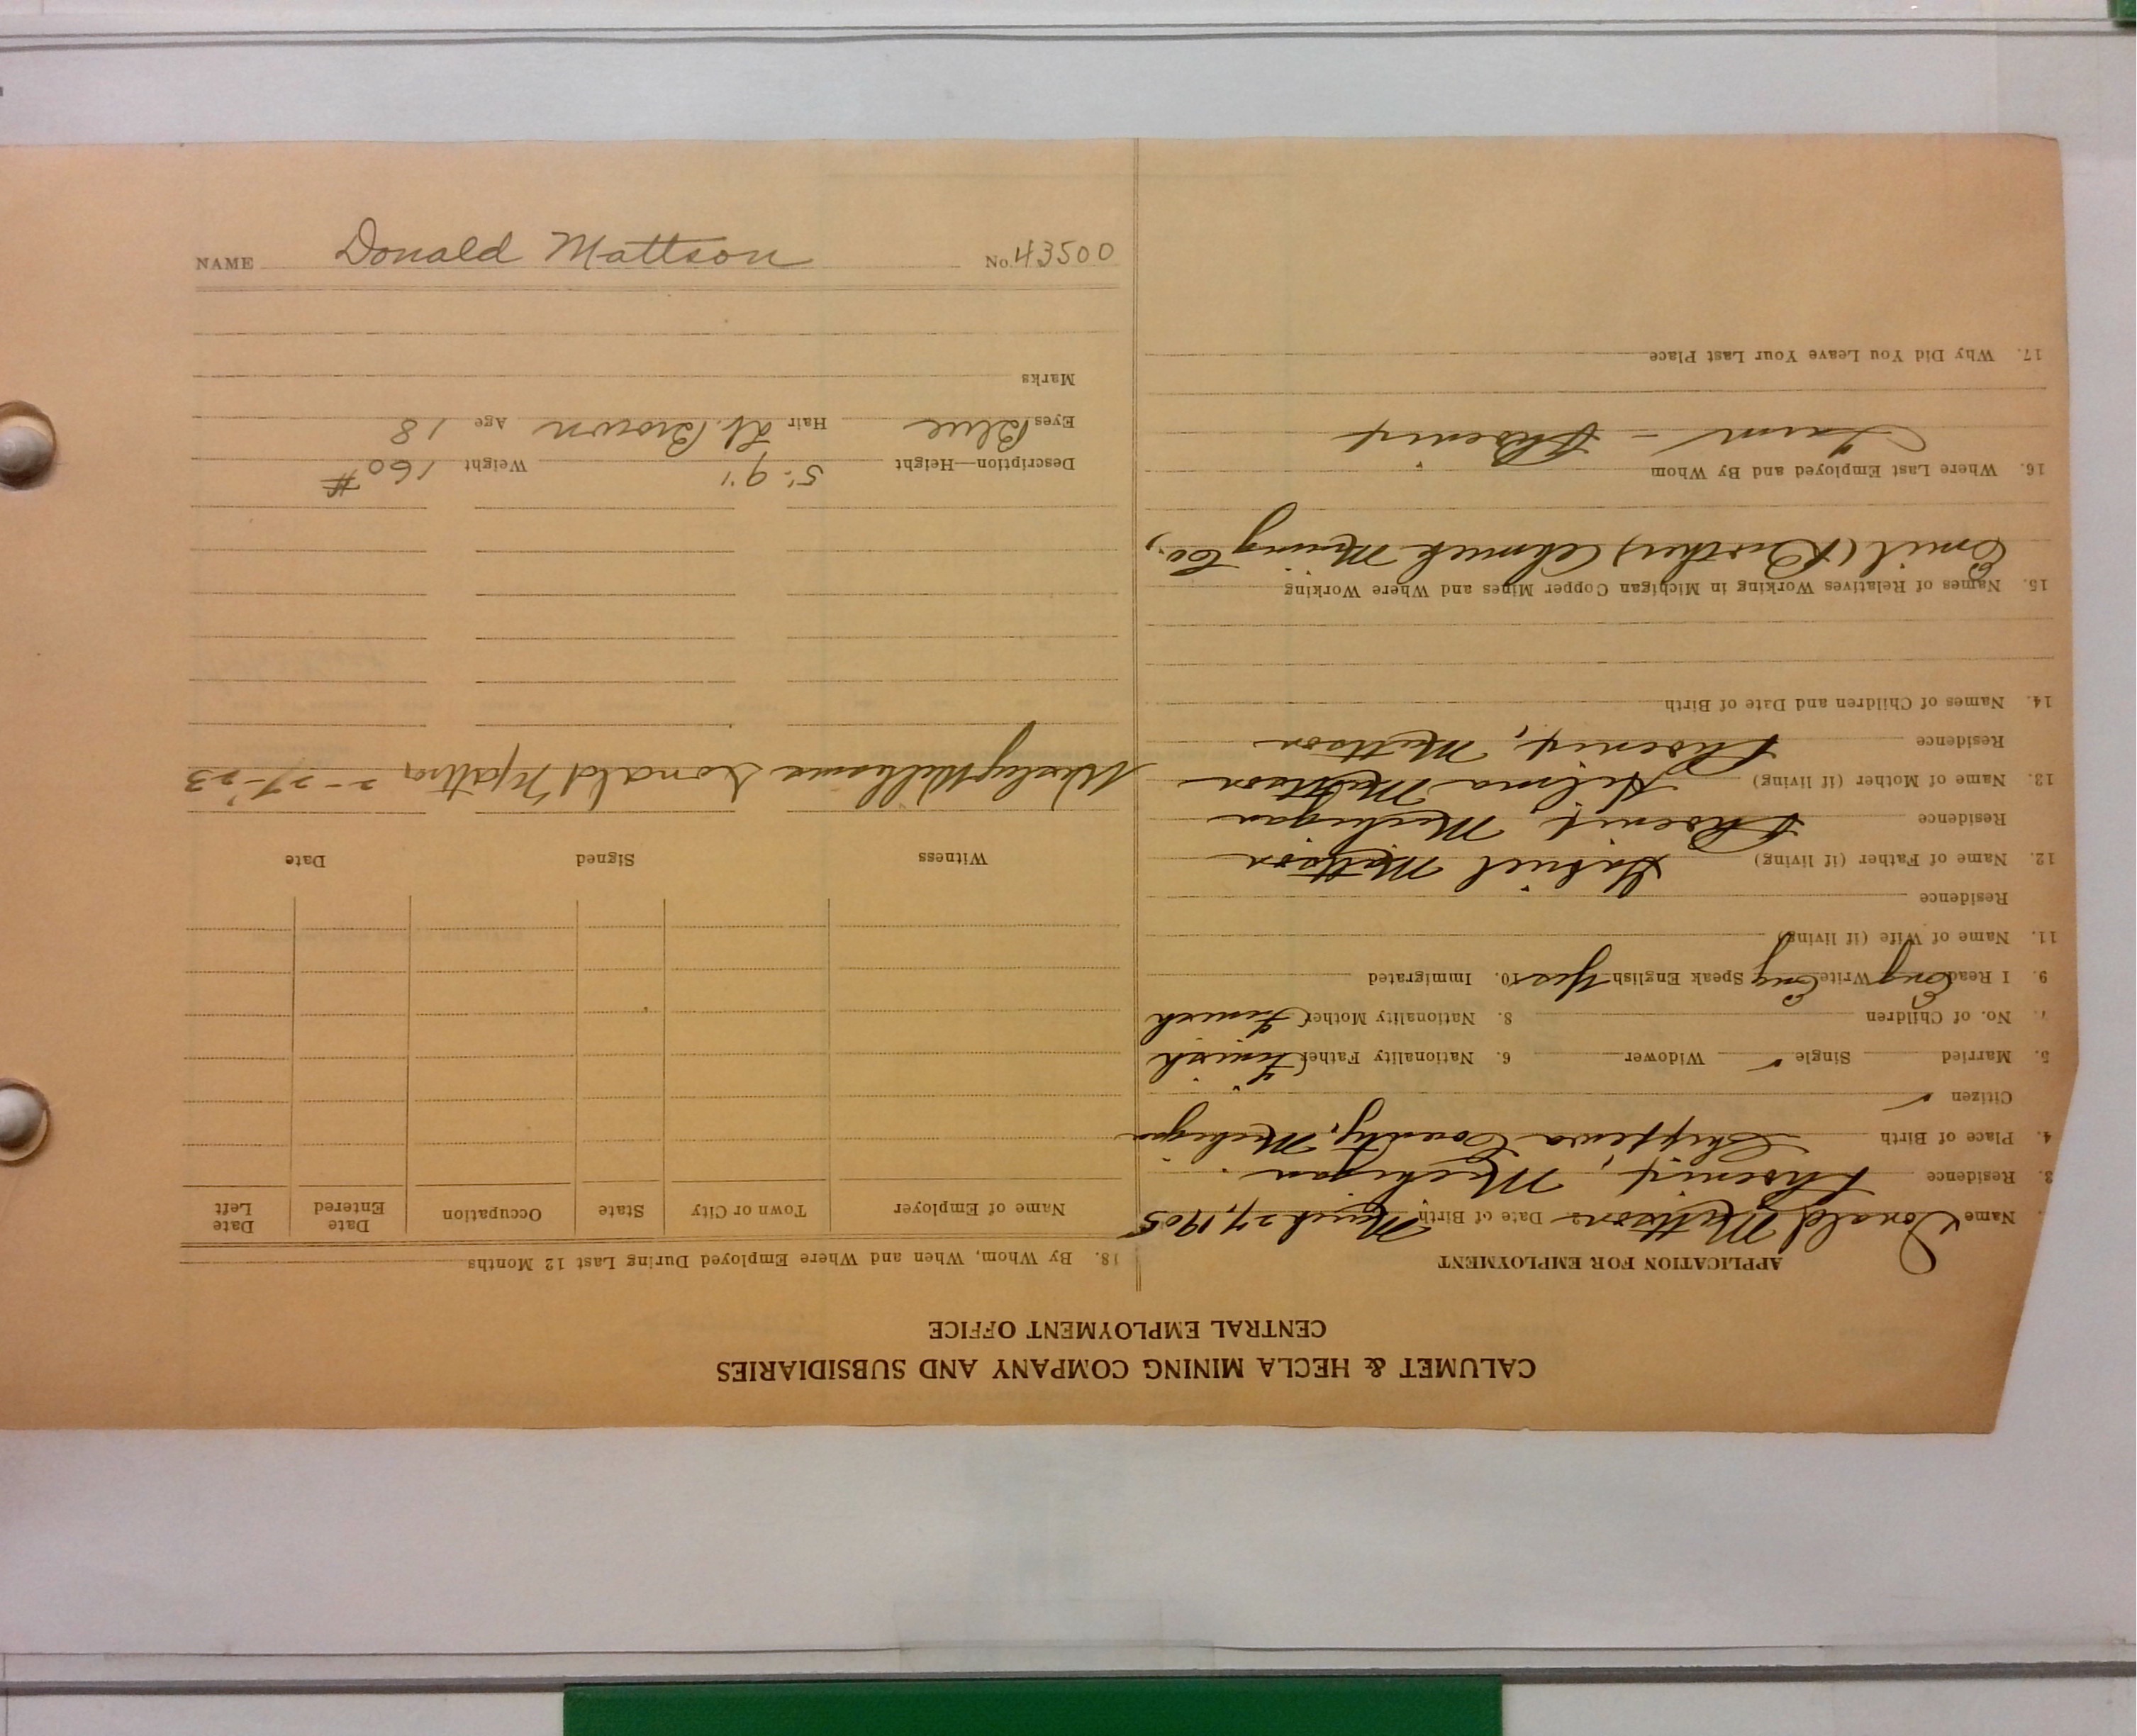 CALUMET & HECLA MINING COMPANY AND SUBSIDIARIES
CENTRAL EMPLOYMENT OFFICE
APPLICATION FOR EMPLOYMENT
Name Donald Mattson 2. Date of Birth March 27, 1905
3. Residence Phoenix, Michigan
4. Place of Birth Chippewa County, Michigan
Citizen ✓
5. Married Single ✓ Widower 6. Nationality Father Finnish
7. No. of Children 8. Nationality Mother Finnish
9. I Read Eng Write Eng Speak English Yes 10. Immigrated
11. Name of Wife (if living)
Residence
12. Name of Father (if living) Gabriel Mattson
Residence Phoenix, Michigan
13. Name of Mother (if living) Hilma Mattson
Residence Phoenix, Mattson
14. Names of Children and Date of Birth
15. Names of Relatives Working in Michigan Copper Mines and Where Working
Emil (Brother) Ahmeek Mining Co.,
16. Where Last Employed and By Whom
Farm - Phoenix
17. Why Did You Leave Your Last Place
18. By Whom, When and Where Employed During Last 12 Months
Name of Employer Town or City State Occupation Date Entered Date Left
Witness Signed Date
Wesley Williams Donald Mattson 2-27-'23
Description—Height 5' 9" Weight 160 #
Eyes Blue Hair Lt. Brown Age 18
Marks
NAME Donald Mattson No. 43500